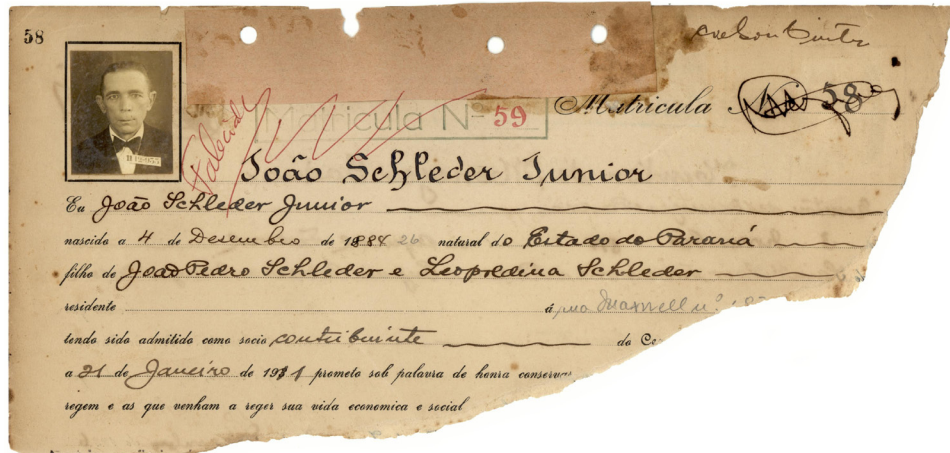 58
Matricula Nº 59
Matricula Nº 58
Falecido
João Schleder Junior
Eu João Schleder Junior
nascido a 4 de Desembro de 1884 26 natural do Estado do Paraná
filho de João Pedro Schleder e Leopredina Schleder
residente á rua Maxwell nº
tendo sido admitido como socio contribuinte do Ce
a 21 de Janeiro de 1931 prometo sob palavra de honra conservar
regem e as que venham a reger sua vida economica e social